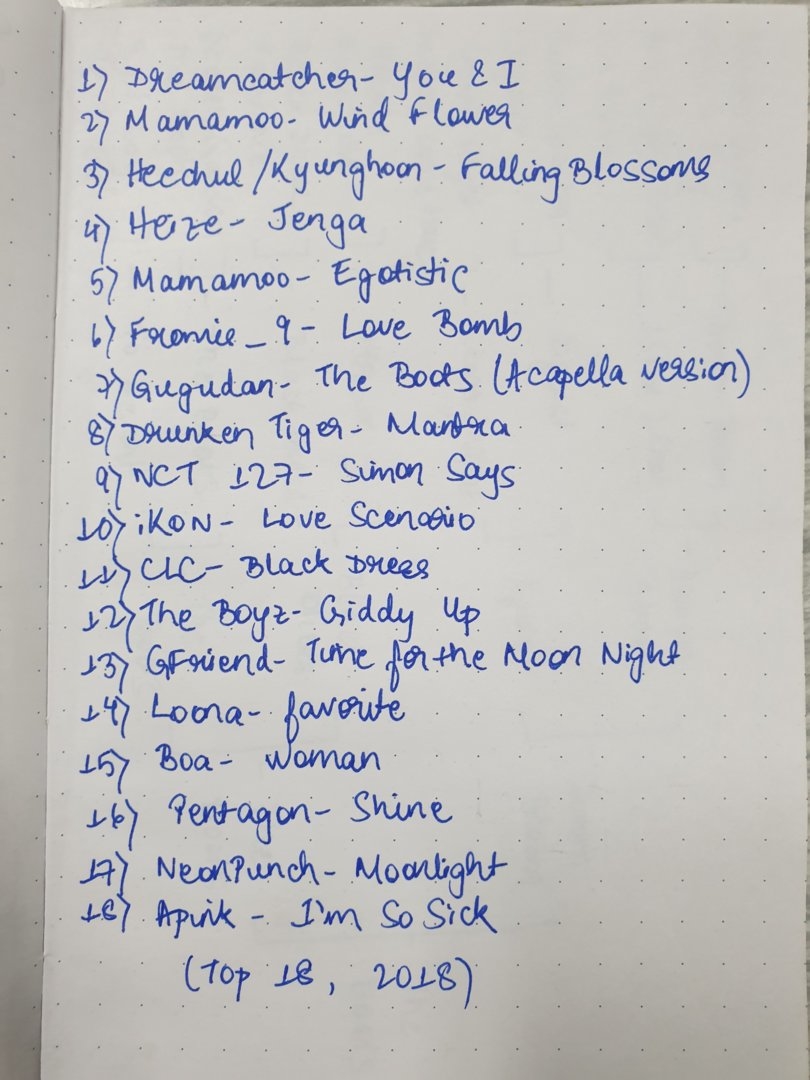 1) Dreamcatcher- You & I
2) Mamamoo- Wind Flower
3) Heechul/Kyunghoon- Falling Blossoms
4) Heize- Jenga
5) Mamamoo- Egotistic
6) Fromie_9- Love Bomb
7) Gugudan- The Boots (Acapella version)
8) Drunken Tiger- Mantra
9) NCT 127- Simon Says
10) iKON- Love Scenario
11) CLC- Black Dress
12) The Boyz- Giddy Up
13) GFriend- Time for the Moon Night
14) Loona- favorite
15) Boa- Woman
16) Pentagon- Shine
17) NeonPunch- Moonlight
18) Apink- I'm So Sick
(Top 18, 2018)